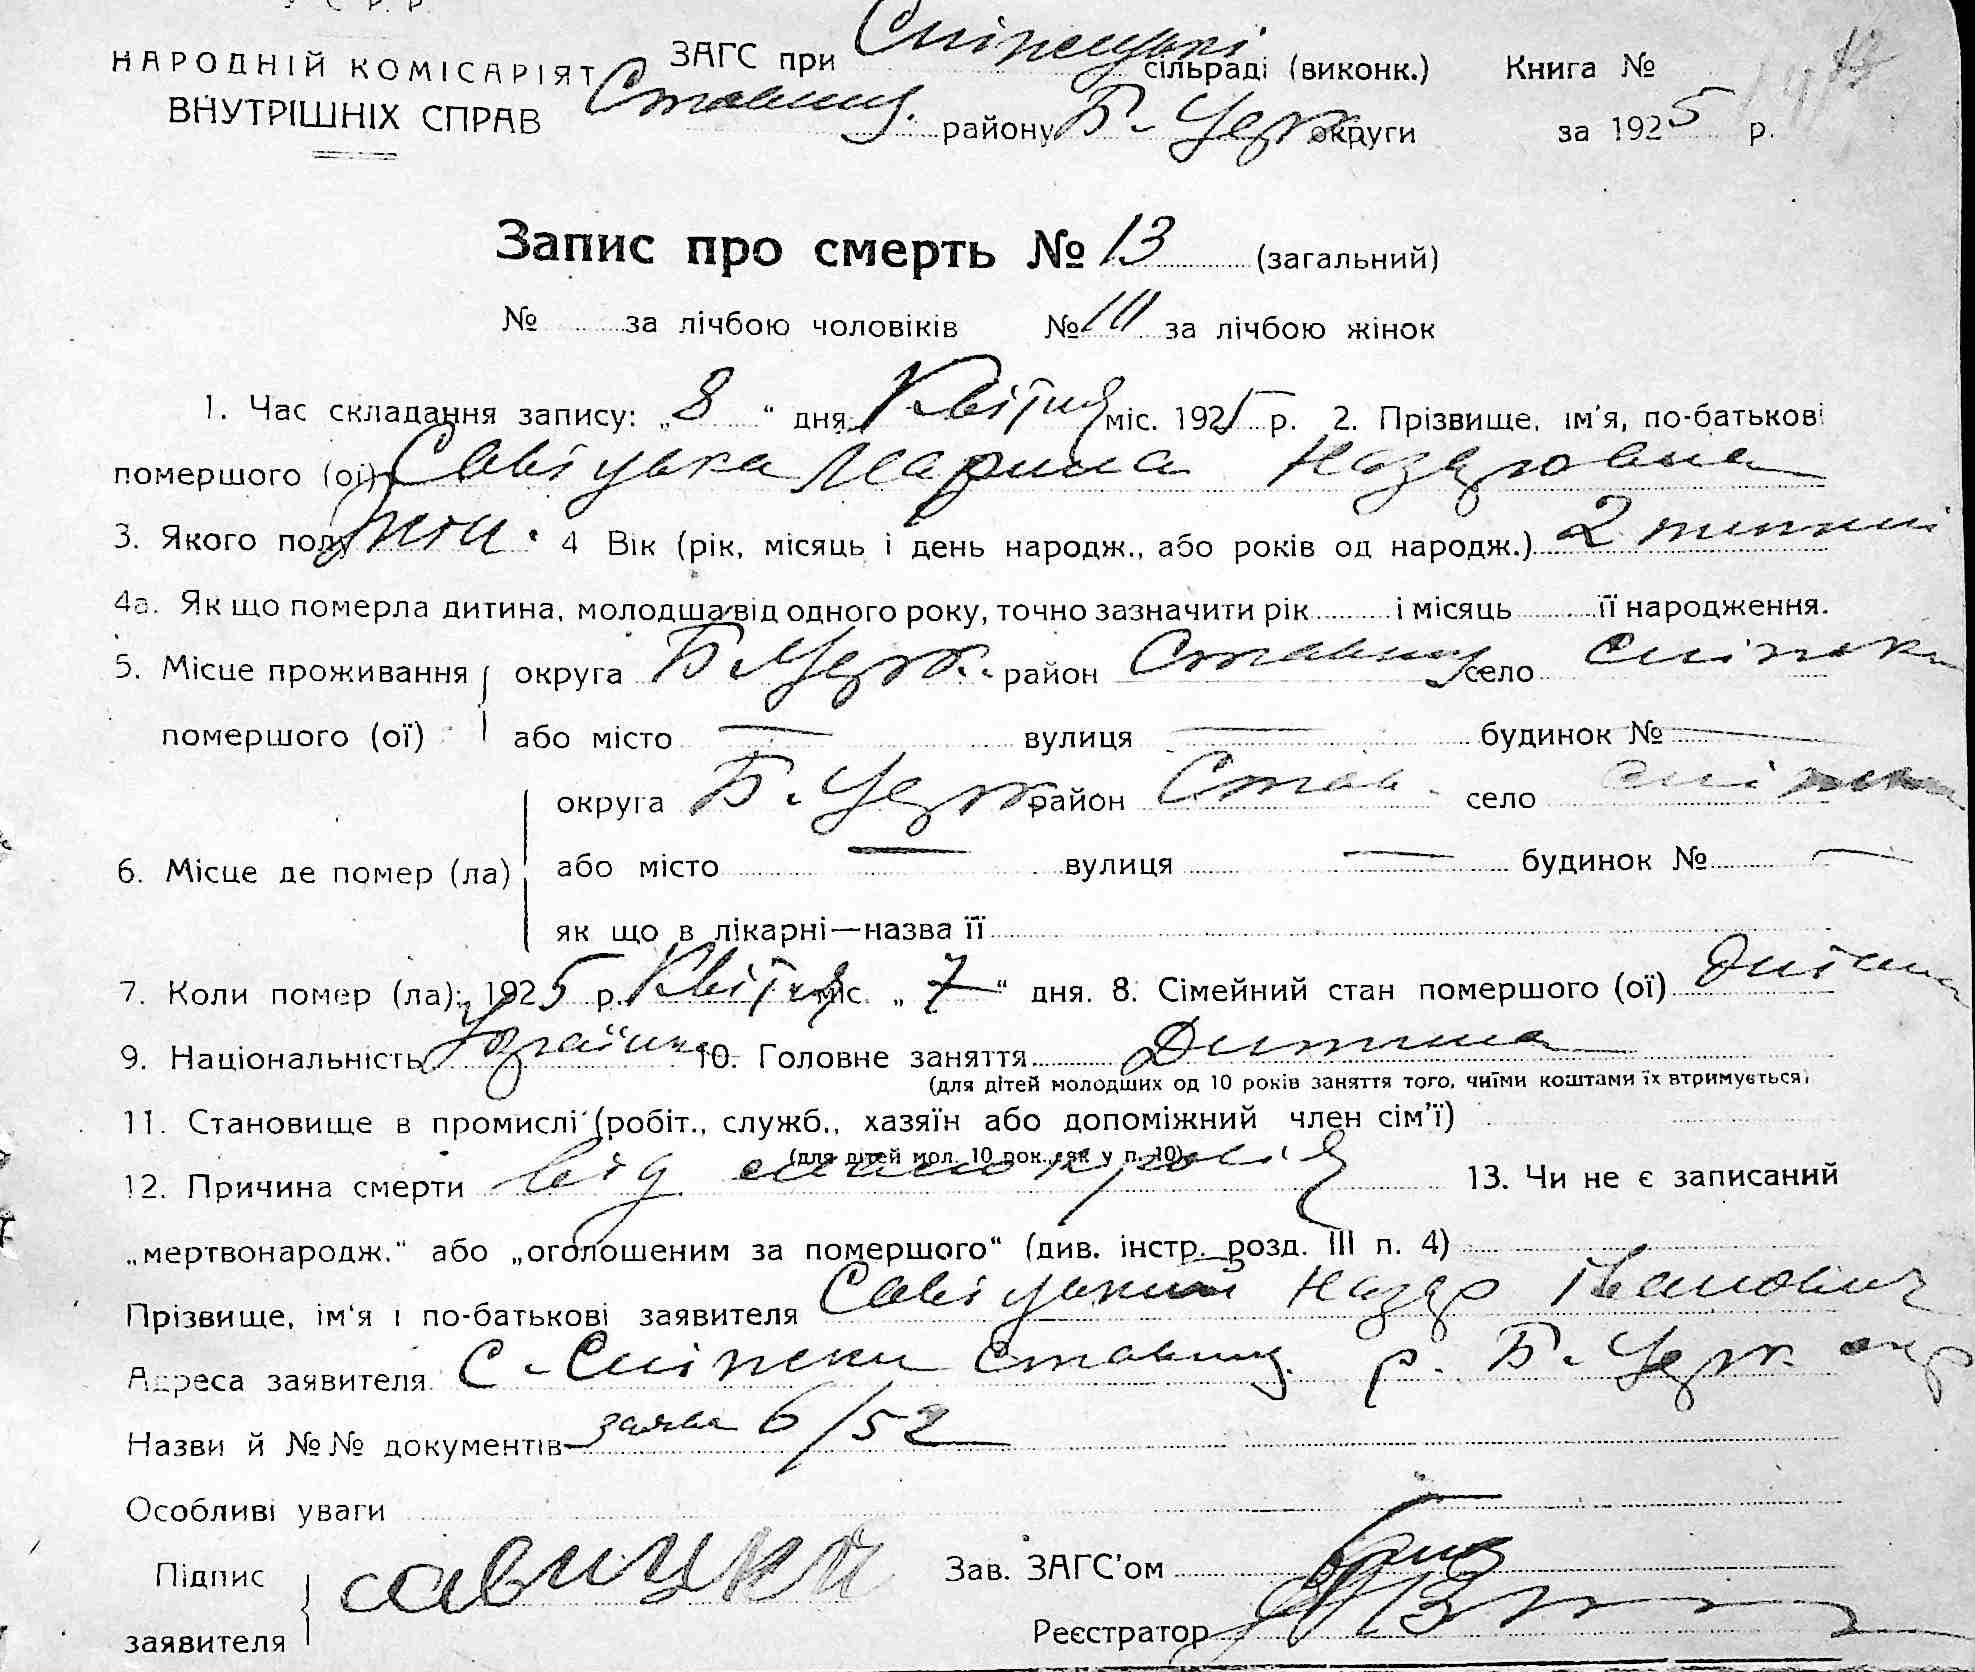 У С Р. Р.
НАРОДНІЙ КОМІСАРІЯТ
ВНУТРІШНІХ СПРАВ
ЗАГС при сільраді (виконк.) Книга №
Ставищ. району Б-Церк округи за 1925 р.
Запис про смерть № 13 (загальний)
№ за лічбою чоловіків № за лічбою жінок
1. Час складання запису: „8“ дня Квітня міс. 1925 р. 2. Прізвище, ім'я, по-батькові
помершого (ої) Савіцька Марина Назаровна
3. Якого полу жін. 4 Вік (рік, місяць і день народж., або років од народж.) 2 тижні
4а. Як що померла дитина, молодша від одного року, точно зазначити рік і місяць її народження.
5. Місце проживання округа Б-Церк. район Ставищ село
помершого (ої) або місто — вулиця — будинок № —
округа Б-Церк район Став. село
6. Місце де помер (ла) або місто — вулиця — будинок № —
як що в лікарні—назва її
7. Коли помер (ла): 1925 р. Квітня міс. „7“ дня. 8. Сімейний стан помершого (ої) дитина
9. Національність Українка 10. Головне заняття Дитина
(для дітей молодших од 10 років заняття того, чиїми коштами їх втримується)
11. Становище в промислі (робіт., служб., хазяїн або допоміжний член сім'ї)
(для дітей мол. 10 рок., як у п. 10)
12. Причина смерти від малокровія 13. Чи не є записаний
„мертвонародж.“ або „оголошеним за помершого“ (див. інстр. розд. III п. 4)
Прізвище, ім'я і по-батькові заявителя Савіцький Назар Іванович
Адреса заявителя с. Ставищ. р. Б-Церк окр
Назви й №№ документів заява 6/52
Особливі уваги
Підпис
заявителя савицки
Зав. ЗАГС'ом
Реєстратор